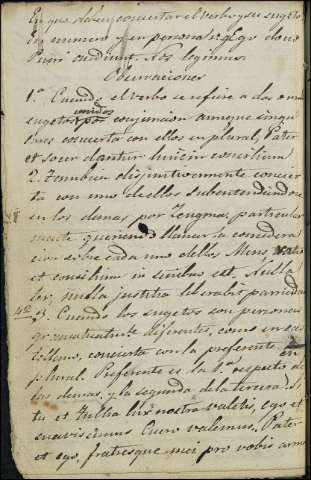 En que deben concertar el verbo y su sugeto
En numero y en persona vg Ego doceo
Pueri audiunt. Nos legimus.
Observaciones
1ª Cuando el verbo se refiere a dos o mas
sugetos unidos por conjuncion aunque singula
res concierta con ellos en plural, Pater
et socer dantur huic in concilium
2. Tambien disjuntivamente concier
ta con uno de ellos subentendiendose
en los demas por Zeugma particular
mente queriendo llamar la considera
cion sobre cada uno de ellos Mens, ratio
et consilium in senibus est. Nulla
ter, nulla justitia liberabit parricidam
3. Cuando los sugetos son personas
gramaticalmte diferentes, como en cas
tellano, concierta con la preferente, en
plural. Preferente es la 1ª respecto de
las demas, y la segunda de la tercera Si
tu et Tullia lux nostra valetis, ego et
suavissimus Cicero valemus. Pater
et ego, fratresque mei pro vobis arma